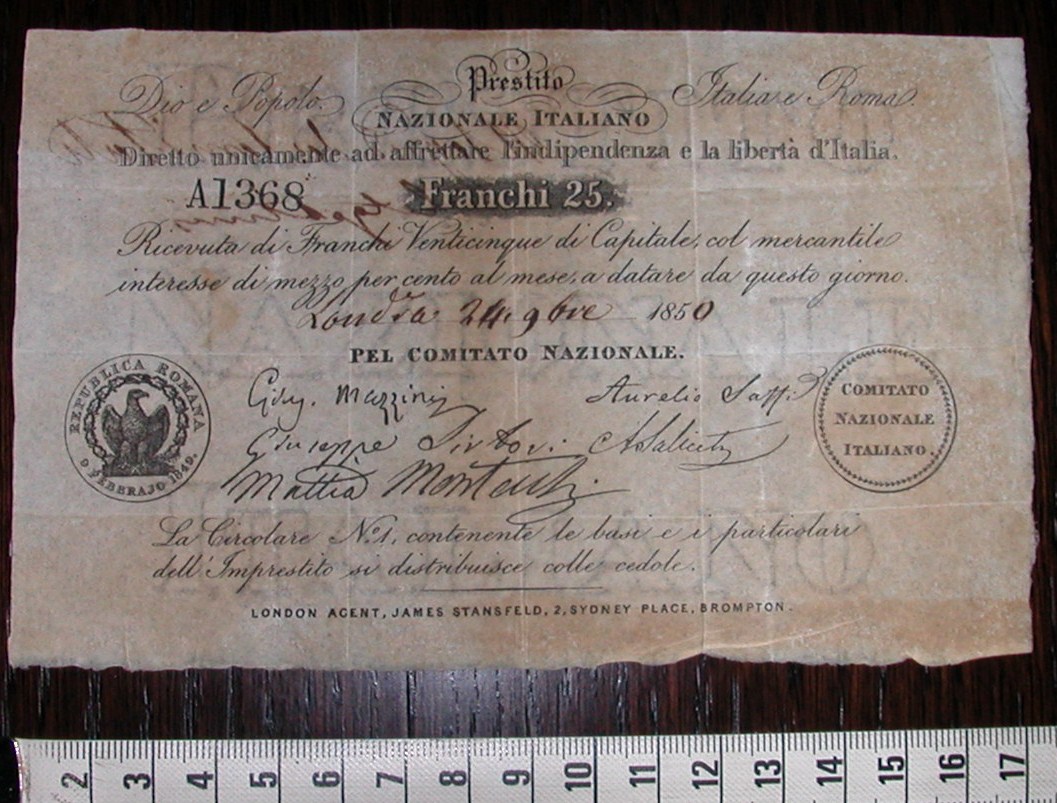 Prestito
Dio e Popolo. Italia e Roma.
NAZIONALE ITALIANO
Diretto unicamente ad affrettare l'indipendenza e la libertà d'Italia.
A1368 Franchi 25.
Ricevuta di Franchi Venticinque di Capitale, col mercantile
interesse di mezzo per cento al mese, a datare da questo giorno.
Londra 24. 9bre 1850
PEL COMITATO NAZIONALE.
REPUBLICA ROMANA
9 FEBBRAJO 1849.
Gius. Mazzini
Aurelio Saffi
Giuseppe Sirtori. A Saliceti
Mattia Montecchi.
COMITATO
NAZIONALE
ITALIANO.
La Circolare No. 1, contenente le basi e i particolari
dell'Imprestito si distribuisce colle cedole.
LONDON AGENT, JAMES STANSFELD, 2, SYDNEY PLACE, BROMPTON.
2 3 4 5 6 7 8 9 10 11 12 13 14 15 16 17